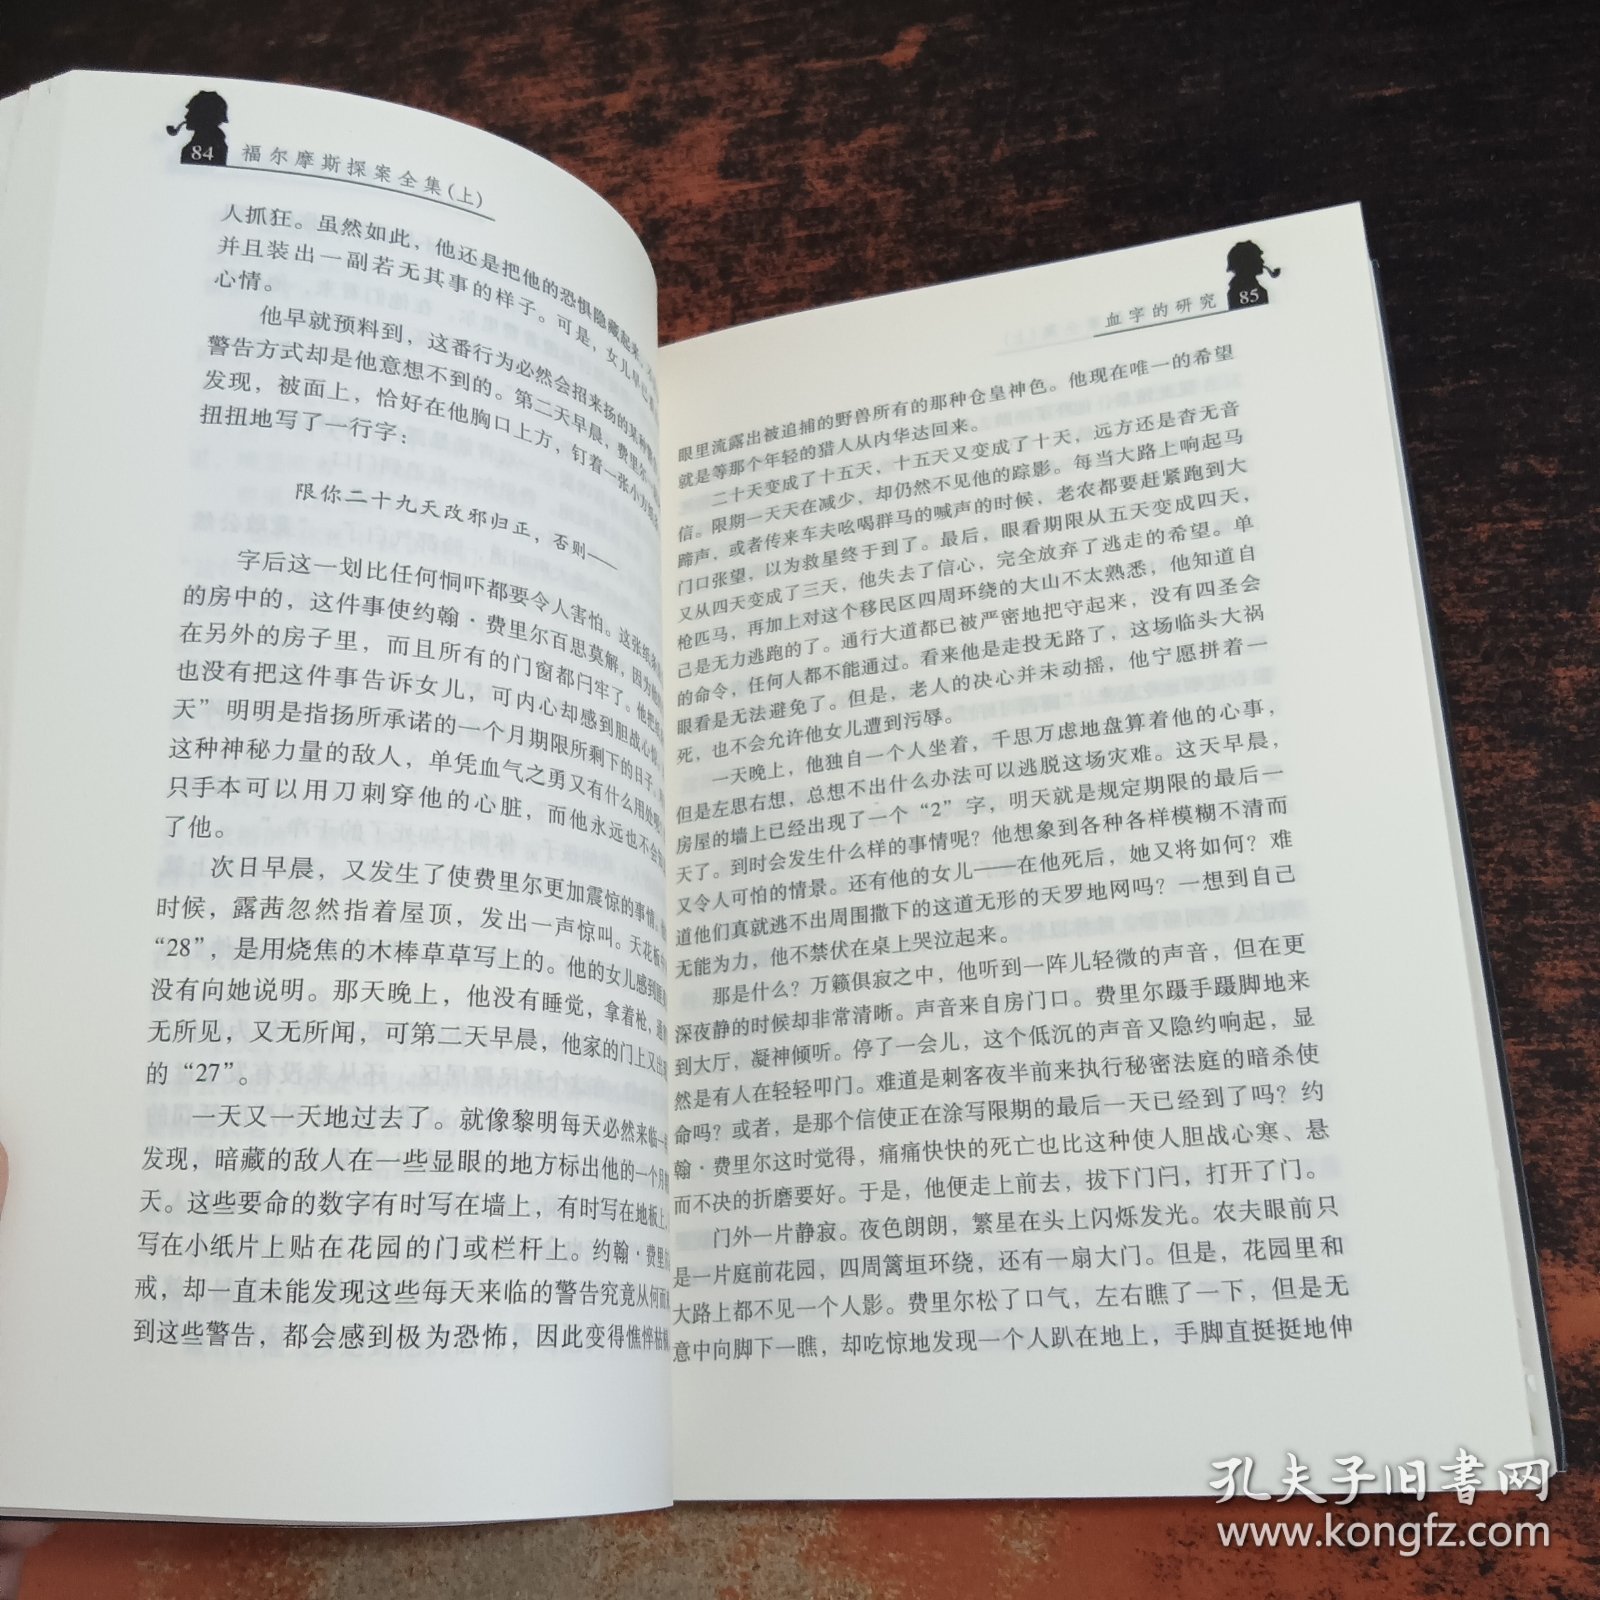 84
福尔摩斯探案全集(上)
人抓狂。虽然如此，他还是把他的恐惧隐藏起来，
并且装出一副若无其事的样子。可是，女儿早已
心情。
他早就预料到，这番行为必然会招来扬的某种警
警告方式却是他意想不到的。第二天早晨，费里尔一
发现，被面上，恰好在他胸口上方，钉着一张小方
扭扭地写了一行字：
限你二十九天改邪归正，否则——
字后这一划比任何恫吓都要令人害怕。这张纸条
的房中的，这件事使约翰·费里尔百思莫解，因为他
在另外的房子里，而且所有的门窗都闩牢了。他把纸
也没有把这件事告诉女儿，可内心却感到胆战心惊。
天”明明是指扬所承诺的一个月期限所剩下的日子。
这种神秘力量的敌人，单凭血气之勇又有什么用处呢
只手本可以用刀刺穿他的心脏，而他永远也不会知
了他。
次日早晨，又发生了使费里尔更加震惊的事情。
时候，露茜忽然指着屋顶，发出一声惊叫。天花板
“28”，是用烧焦的木棒草草写上的。他的女儿感到
没有向她说明。那天晚上，他没有睡觉，拿着枪，通
无所见，又无所闻，可第二天早晨，他家的门上又出
的“27”。
一天又一天地过去了。就像黎明每天必然来临一
发现，暗藏的敌人在一些显眼的地方标出他的一个月
天。这些要命的数字有时写在墙上，有时写在地板上，
写在小纸片上贴在花园的门或栏杆上。约翰·费里
戒，却一直未能发现这些每天来临的警告究竟从何而
到这些警告，都会感到极为恐怖，因此变得憔悴枯
血字的研究
85
眼里流露出被追捕的野兽所有的那种仓皇神色。他现在唯一的希望
就是等那个年轻的猎人从内华达回来。
二十天变成了十五天，十五天又变成了十天，远方还是杳无音
信。限期一天天在减少，却仍然不见他的踪影。每当大路上响起马
蹄声，或者传来车夫吆喝群马的喊声的时候，老农都要赶紧跑到大
门口张望，以为救星终于到了。最后，眼看期限从五天变成四天，
又从四天变成了三天，他失去了信心，完全放弃了逃走的希望。单
枪匹马，再加上对这个移民区四周环绕的大山不太熟悉，他知道自
己是无力逃跑的了。通行大道都已被严密地把守起来，没有四圣会
的命令，任何人都不能通过。看来他是走投无路了，这场临头大祸
眼看是无法避免了。但是，老人的决心并未动摇，他宁愿拼着一
死，也不会允许他女儿遭到污辱。
一天晚上，他独自一个人坐着，千思万虑地盘算着他的心事，
但是左思右想，总想不出什么办法可以逃脱这场灾难。这天早晨，
房屋的墙上已经出现了一个“2”字，明天就是规定期限的最后一
天了。到时会发生什么样的事情呢？他想象到各种各样模糊不清而
又令人可怕的情景。还有他的女儿——在他死后，她又将如何？难
道他们真就逃不出周围撒下的这道无形的天罗地网吗？一想到自己
无能为力，他不禁伏在桌上哭泣起来。
那是什么？万籁俱寂之中，他听到一阵儿轻微的声音，但在更
深夜静的时候却非常清晰。声音来自房门口。费里尔蹑手蹑脚地来
到大厅，凝神倾听。停了一会儿，这个低沉的声音又隐约响起，显
然是有人在轻轻叩门。难道是刺客夜半前来执行秘密法庭的暗杀使
命吗？或者，是那个信使正在涂写限期的最后一天已经到了吗？约
翰·费里尔这时觉得，痛痛快快的死亡也比这种使人胆战心寒、悬
而不决的折磨要好。于是，他便走上前去，拔下门闩，打开了门。
门外一片静寂。夜色朗朗，繁星在头上闪烁发光。农夫眼前只
是一片庭前花园，四周篱垣环绕，还有一扇大门。但是，花园里和
大路上都不见一个人影。费里尔松了口气，左右瞧了一下，但是无
意中向脚下一瞧，却吃惊地发现一个人趴在地上，手脚直挺挺地伸
孔夫子旧书网
www.kongfz.com